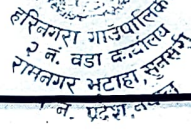 हरिनगरा गाउँपालिका
२ नं. वडा कार्यालय
रामनगर भुटाहा, सुनसरी
नं. प्रदेश, नेपाल